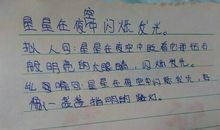 星星在夜空中闪烁发光。
拟人句:星星在夜空中眨着它那
般明亮的大眼睛,闪烁发光。
比喻句:星星在夜空中闪烁发光,
像一盏盏指明的路灯。